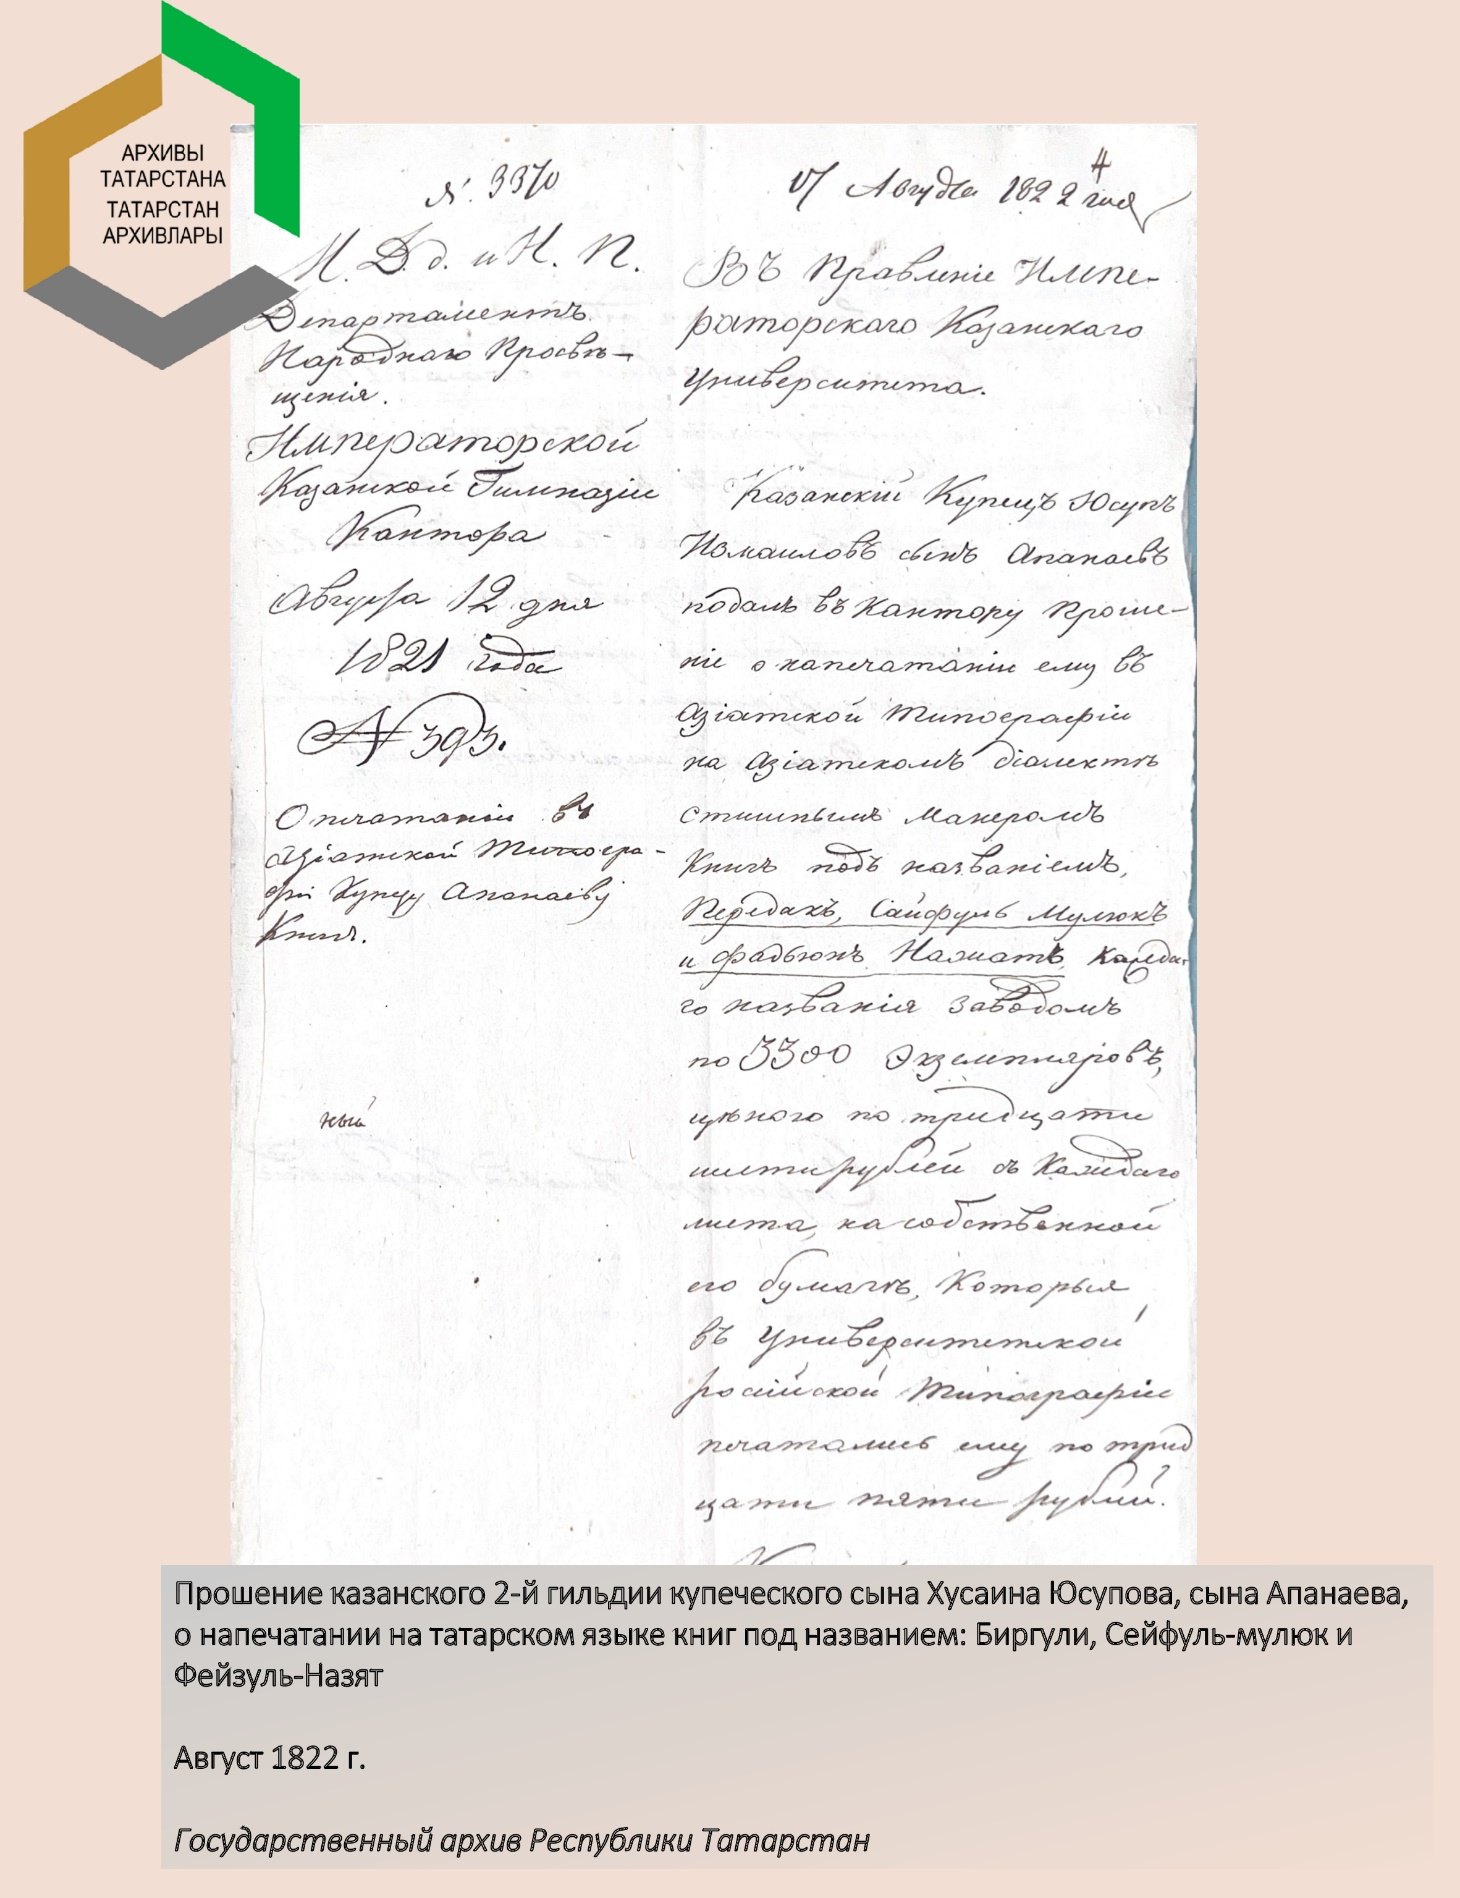 АРХИВЫ
ТАТАРСТАНА
ТАТАРСТАН
АРХИВЛАРЫ
№ 3370
М. Д. д. и Н. П.
Департаментъ
Народнаго Просвѣ-
щенія.
Императорской
Казанской Гимназіи
Кантора
Августа 12 дня
1821 года
№ 393.
О печатаніи въ
Азіатской Типогра-
фіи Купцу Апанаеву
Книгъ.
ный
Августа 1822 года
Въ Правленіе Импе-
раторскаго Казанскаго
Университета.
Казанскій Купецъ Юсупъ
Измаиловъ сынъ Апанаевъ
подалъ въ Кантору Проше-
ніе о напечатаніи ему въ
Азіатской Типографіи
на Азіатскомъ діалектѣ
Манеромъ
Книгъ подъ названіемъ,
Сайфуль Мулюкъ
и Каждa-
го названія заводомъ
по 3300 Экземпляровъ,
цѣною по тридцати
шести рублей съ Каждаго
листа, на собственной
его бумагѣ, Которыя
въ Университетской
россійской Типографіи
печатались ему по трид
цати пяти рублей.
Прошение казанского 2-й гильдии купеческого сына Хусаина Юсупова, сына Апанаева,
о напечатании на татарском языке книг под названием: Биргули, Сейфуль-мулюк и
Фейзуль-Назят
Август 1822 г.
Государственный архив Республики Татарстан